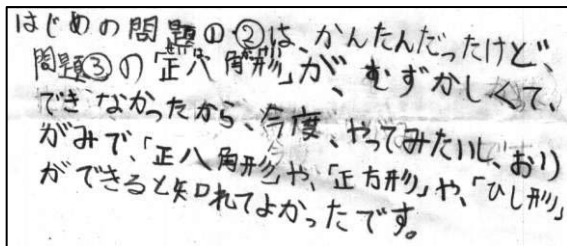 はじめの問題①②は、かんたんだったけど、
問題③の「正八角形」が、むずかしくて、
できなかったから、今度、やってみたいし、おり
がみで、「正八角形」や、「正方形」や、「ひし形」
ができると知れてよかったです。